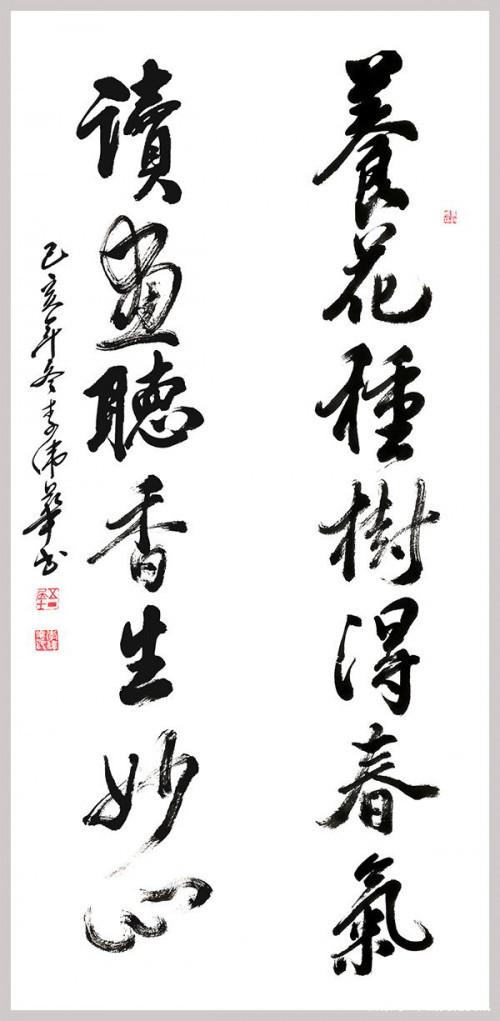 養花種樹得春氣
讀畫聽香生妙心
己亥年冬李偉華書